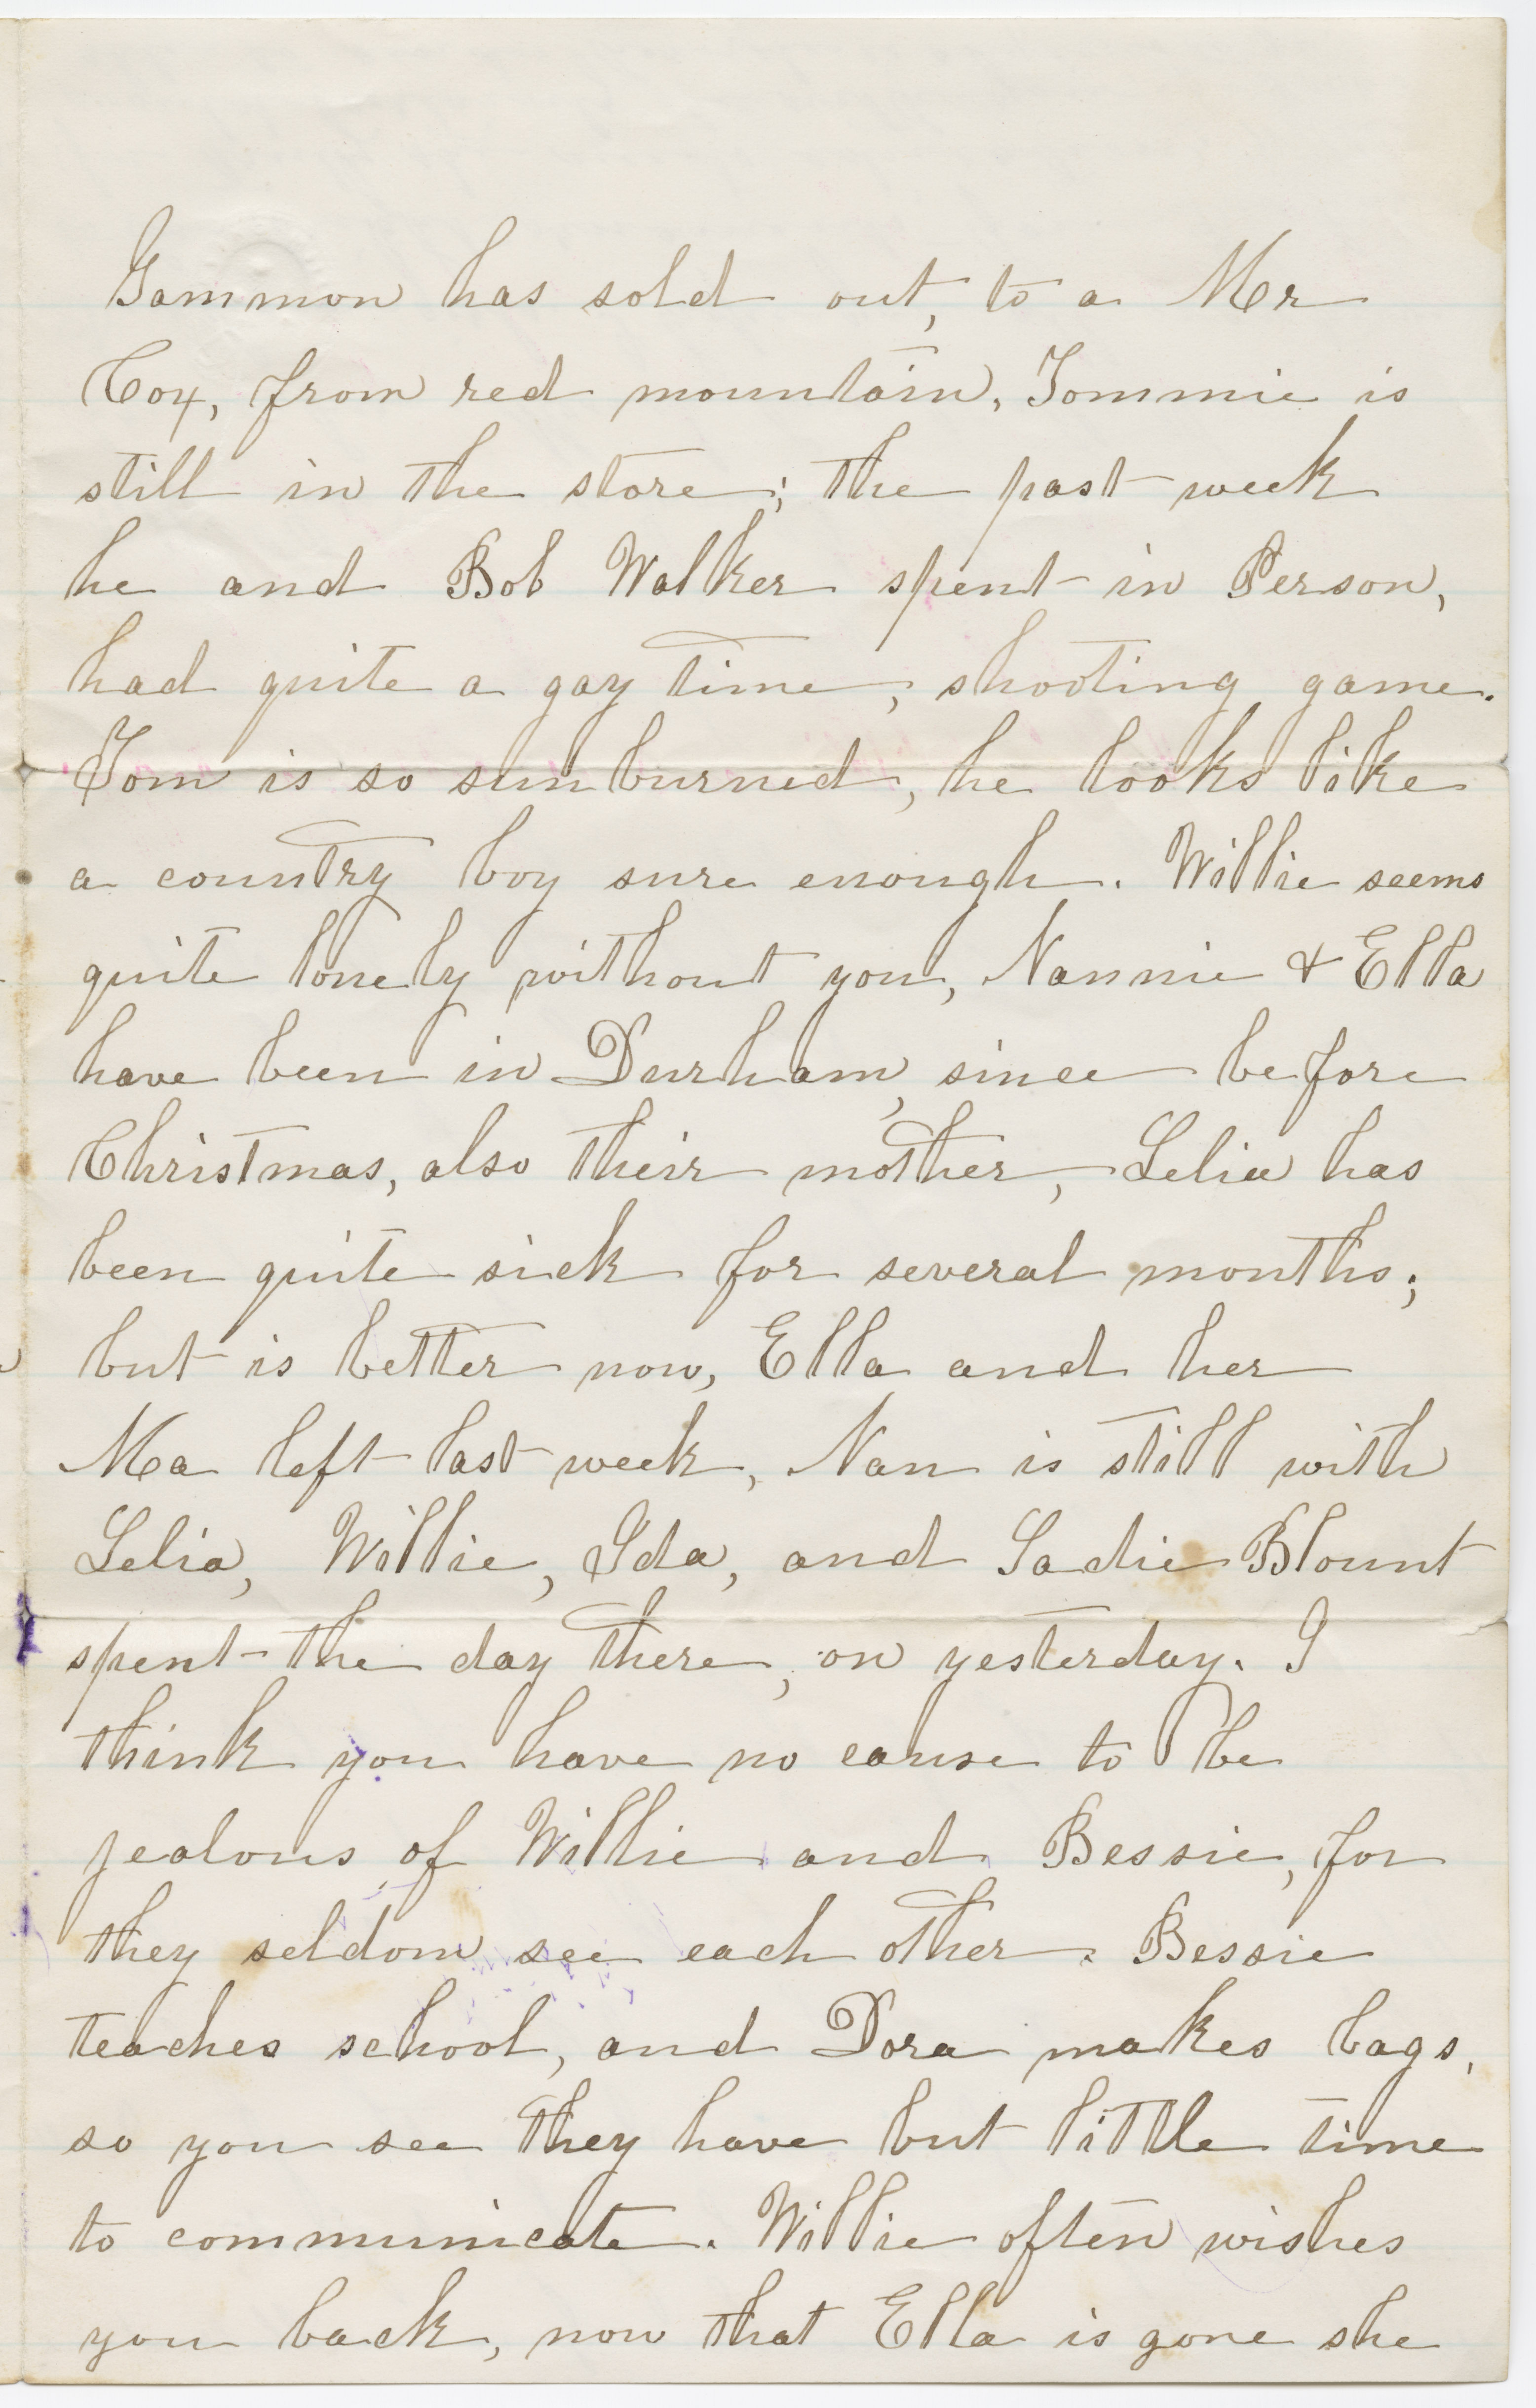 Gammon has sold out, to a Mr
Cox, from red mountain, Tommie is
still in the store; the past week
he and Bob Walker spent in Person,
had quite a gay time, shooting game.
Tom is so sun burned, he looks like
a country boy sure enough. Willie seems
quite lonely without you, Nannie & Ella
have been in Durham, since before
Christmas, also their mother, Lelia has
been quite sick for several months;
but is better now, Ella and her
Ma left last week, Nan is still with
Lelia, Willie, Ida, and Sadie Blount
spent the day there, on yesterday. I
think you have no cause to be
jealous of Willie and Bessie, for
they seldom see each other. Bessie
teaches school, and Dora makes bags,
so you see they have but little time
to communicate. Willie often wishes
you back, now that Ella is gone she